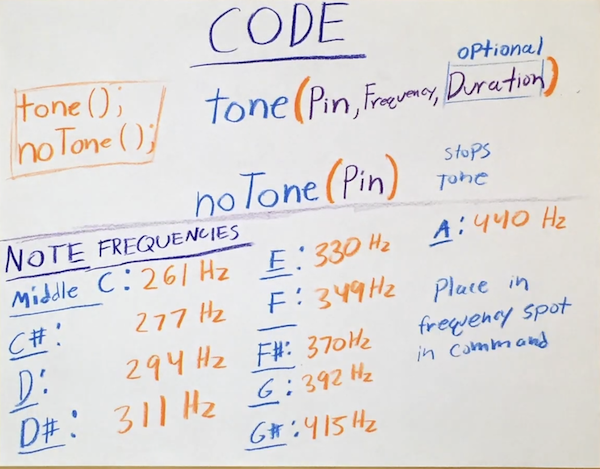 CODE
tone();
noTone();
optional
tone(Pin, Frequency, Duration)
noTone(Pin)
stops
tone
NOTE FREQUENCIES
Middle C: 261 Hz
C#: 277 Hz
D: 294 Hz
D#: 311 Hz
E: 330 Hz
F: 349 Hz
F#: 370 Hz
G: 392 Hz
G#: 415 Hz
A: 440 Hz
Place in
frequency spot
in command